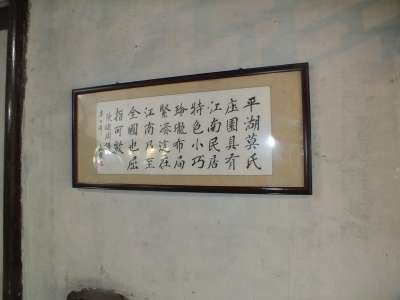 平湖莫氏
庄園具有
江南民居
特色小巧
玲瓏布局
緊湊這在
江南乃至
全國也屈
指可數